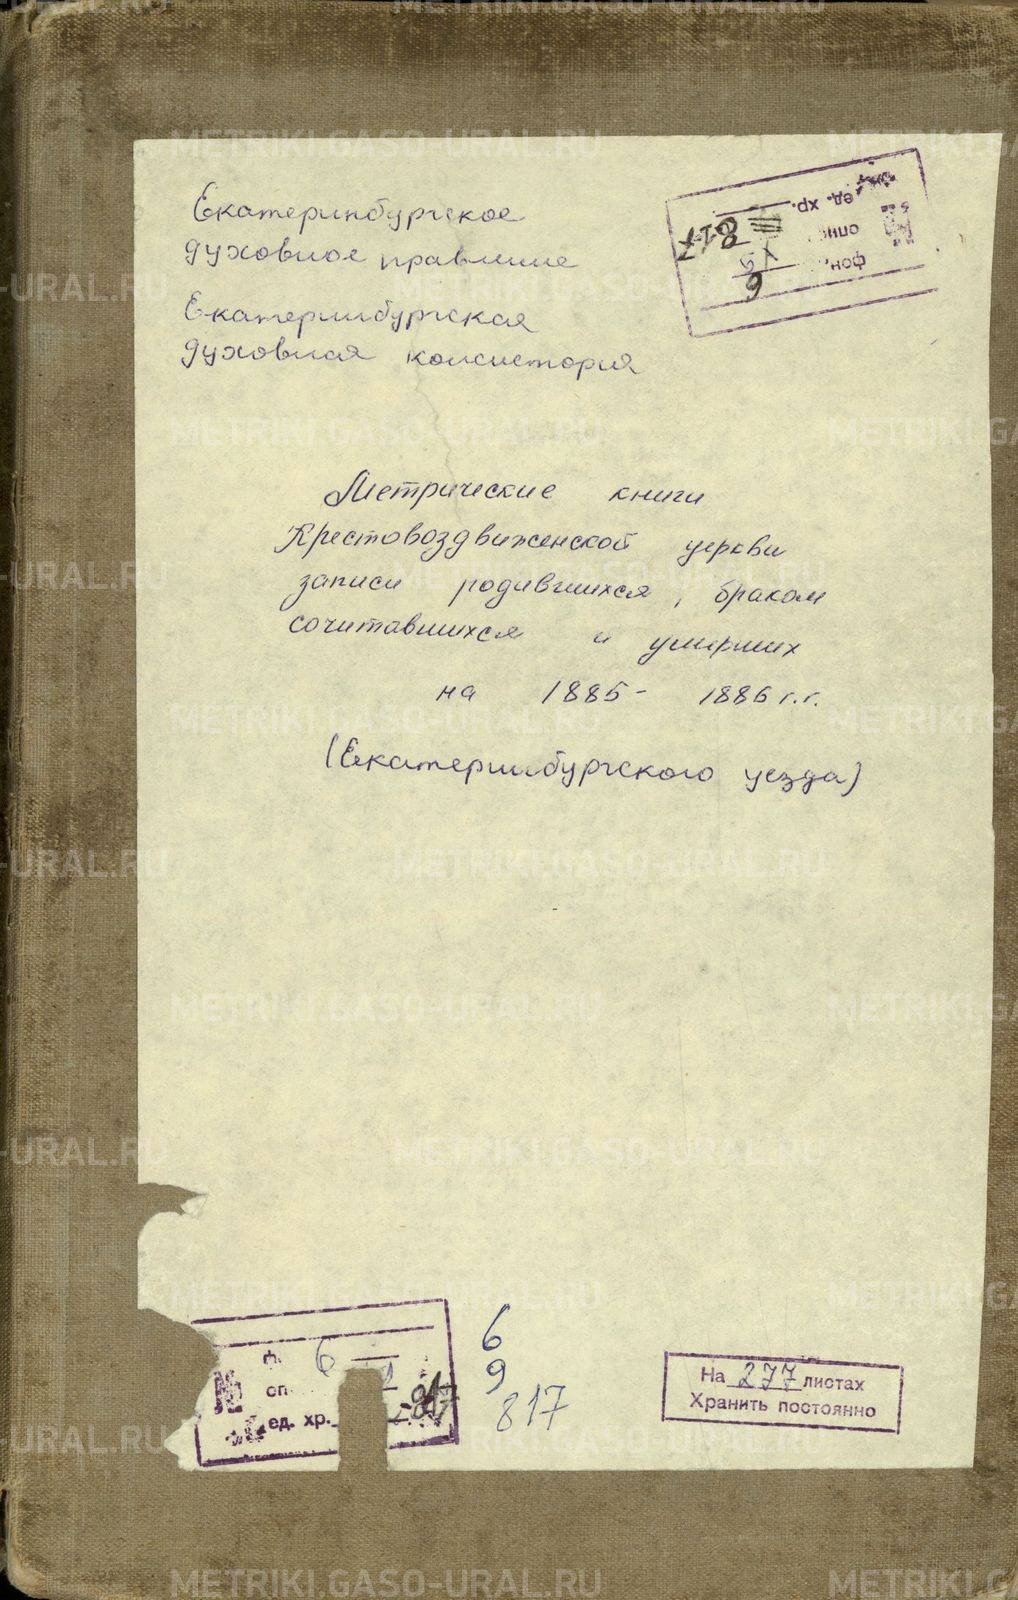 Екатеринбургское
духовное правление
Екатеринбургская
духовная консистория
фон.
опис.
ед. хр. 817
6
Метрические книги
Крестовоздвиженской церкви
записи родившихся, браком
сочитавшихся и умерших
на 1885- 1886 г.г.
(Екатеринбургского уезда)
№
ф. 6
оп
ед. хр. 817
6
9
817
На 277 листах
Хранить постоянно
METRIKI.GASO-URAL.RU